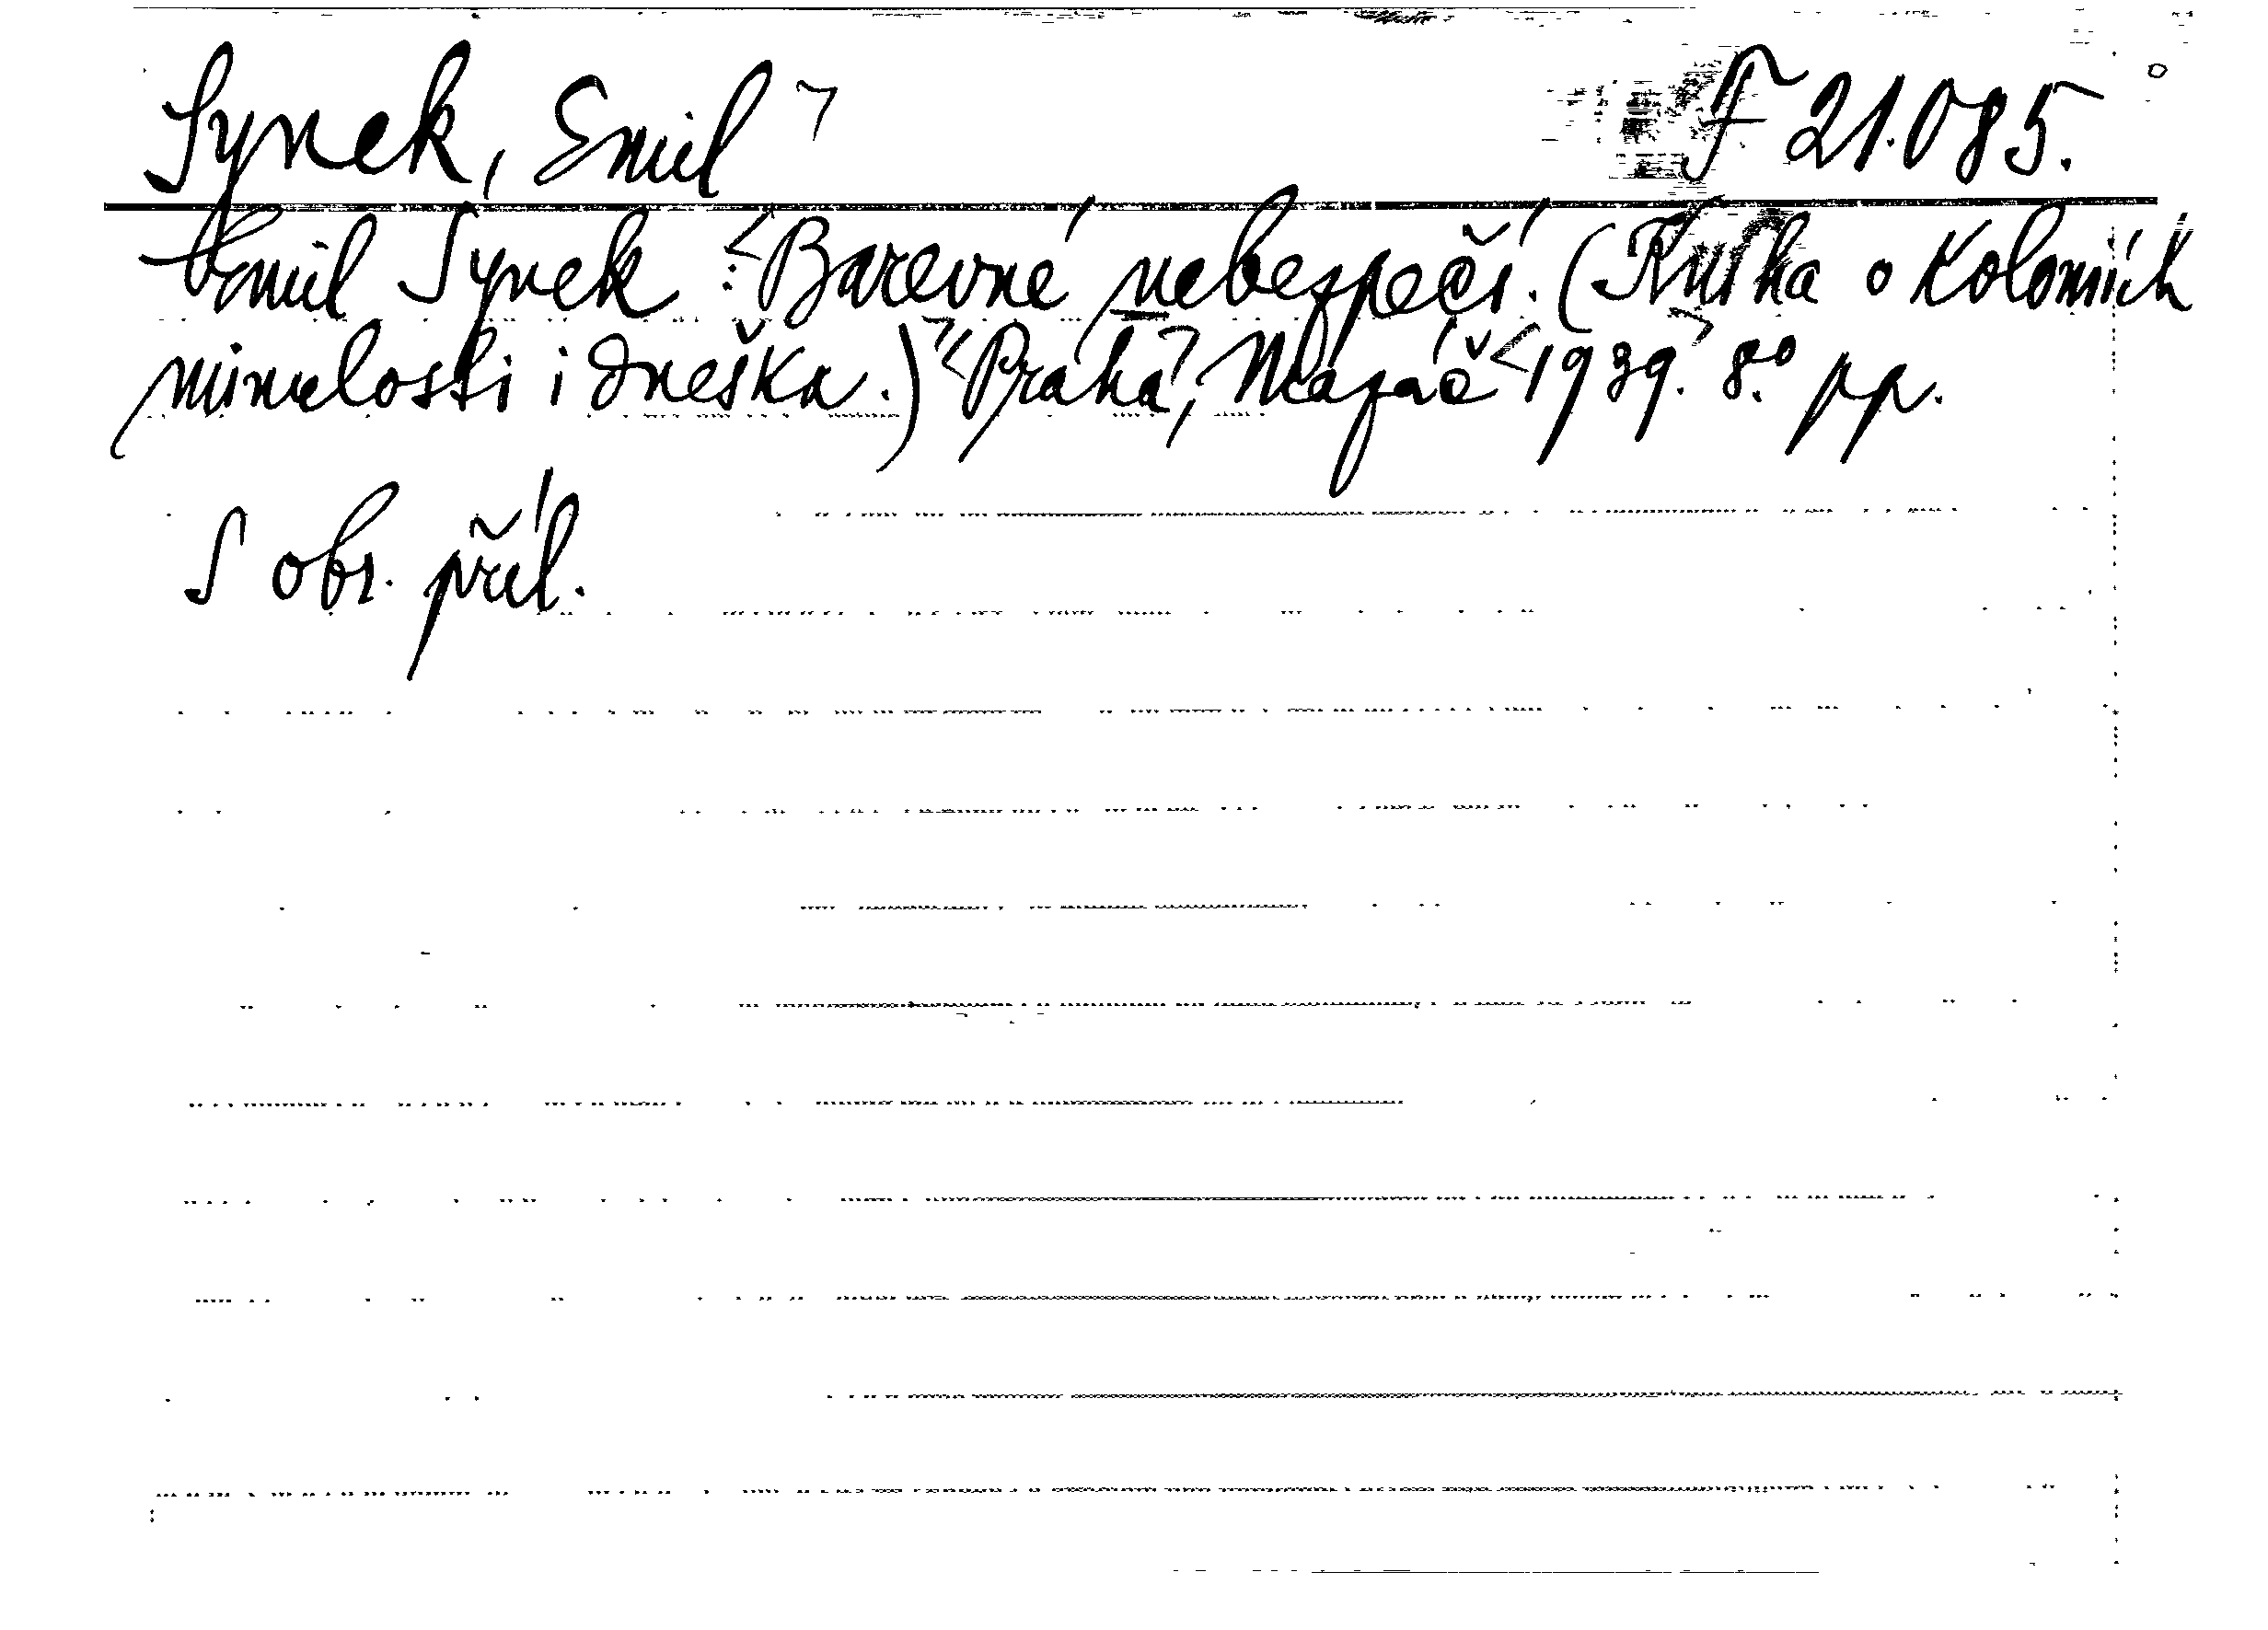 Synek, Emil F 21.085.
Emil Synek : Barevné nebezpečí. (Kniha o koloniích
minulosti i dneška.) Praha, Mazáč 1939. 8.° pp.
S obr. příl.